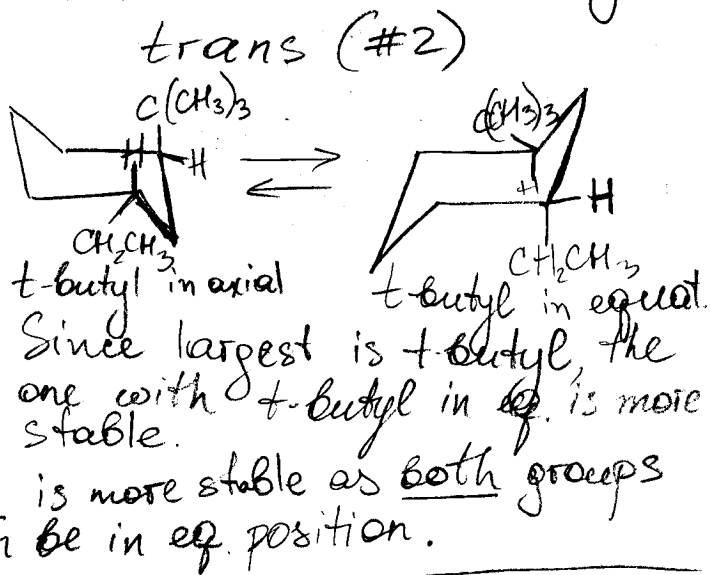 trans (#2)
C(CH3)3
H
H
CH2CH3
C(CH3)3
H
H
CH2CH3
t-butyl in axial
t-butyl in equat.
Since largest is t-butyl, the
one with t-butyl in eq. is more
stable.
is more stable as both groups
be in eq. position.